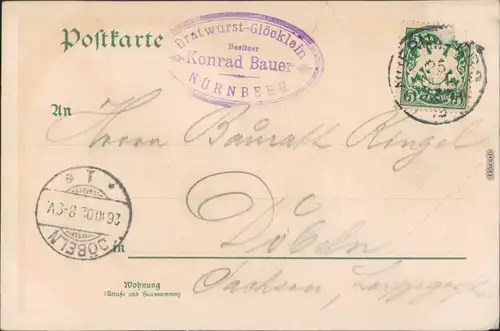 Postkarte
Bratwurst-Glöcklein
Besitzer
Konrad Bauer
NÜRNBERG
25
5 5
An
Herrn Baurath Ringel
* 1 c *
26.10.02.8-9V.
DÖBELN
in Döbeln
Wohnung
(Straße und Hausnummer)
Sachsen,